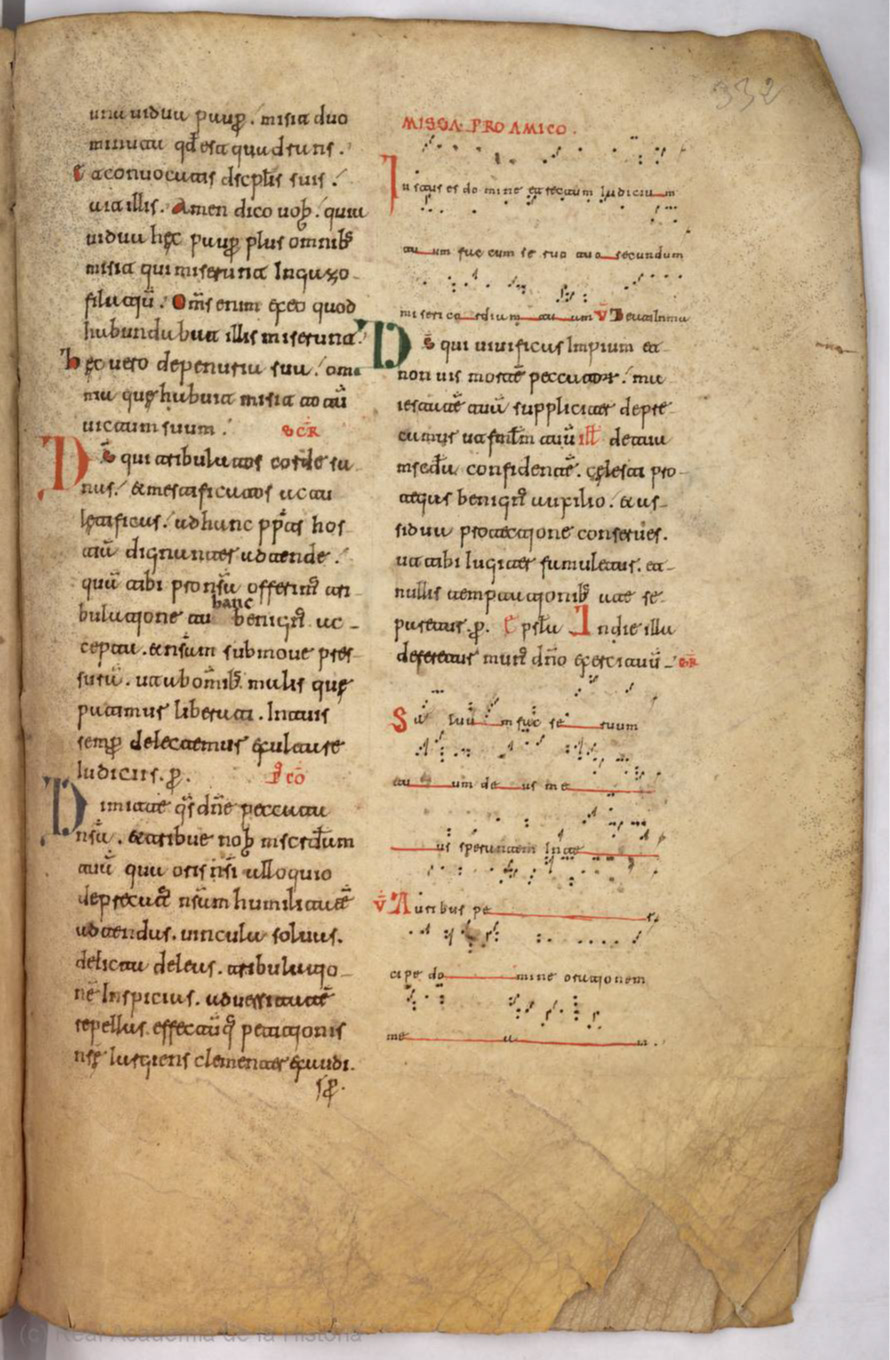 332
una uidua paup̱. misit duo
minuta qd̄ est quadrans.
Et conuocatis discipl̄is suis.
ait illis. Amen dico uob̄. quia
uidua hęc paup̱ plus omnib̄
misit qui miserunt In gazo-
filatiū. Om̄s enim ex eo quod
habundabat illis miserunt.
hęc uero de penuria sua. om-
nia quę habuit misit totū
uictum suum. SCR̄
Ds̄ qui contribulatos corde sa-
nas. & mestificatos uc au
lętificas. ad hanc pp̄tis hos-
tiā dignanter adtende.
quā tibi pro nsā offerim̄ tri-
bulatione tu hanc benign̄. ac-
cepta. & nsam submoue pres-
surā. ut ab om̄ib̄ malis quę
patimur liberati. In tuis
semp̱ delectemur exultare
Iudiciis. p̱. P̄ CŌ
Dimitte qs̄ dn̄e peccata
nsā. & tribue nob̄ mscrd̄am
tuā qua oris nsi alloquio
deprecat̄ nsam humilitatē
adtendas. uincula soluas.
delicta deleas. tribulatio-
nē Inspicias. aduersitatē
repellas. effectūq̄ petitionis
nsę largiens clementer exaudi.
p̱.
MISSA PRO AMICO.
Iustus es domine et rectum Iudicium
tuum fac cum seruo tuo secundum
misericordiam tuam V̄ Beati Inma
Ds̄ qui iustificas Impium et
non uis mortē peccatorum. ma-
iestatē tuā suppliciter depre-
camur ut famłm tuū ill̄ de tua
mseda confidentē. cęlesti pro-
tegas benign̄ auxilio. & as-
sidua protectione conserues.
ut tibi Iugiter famuletur. et
nullis temptationib̄ a te se-
paretur. p̱. Epsła In die illa
deferetur mun̄ dn̄o exercituū- GR̄
Saluum fac seruum
tuum deus me
us sperantem In te
V̄ Auribus per
cipe domine orationem
meam.
(c) Real Academia de la Historia